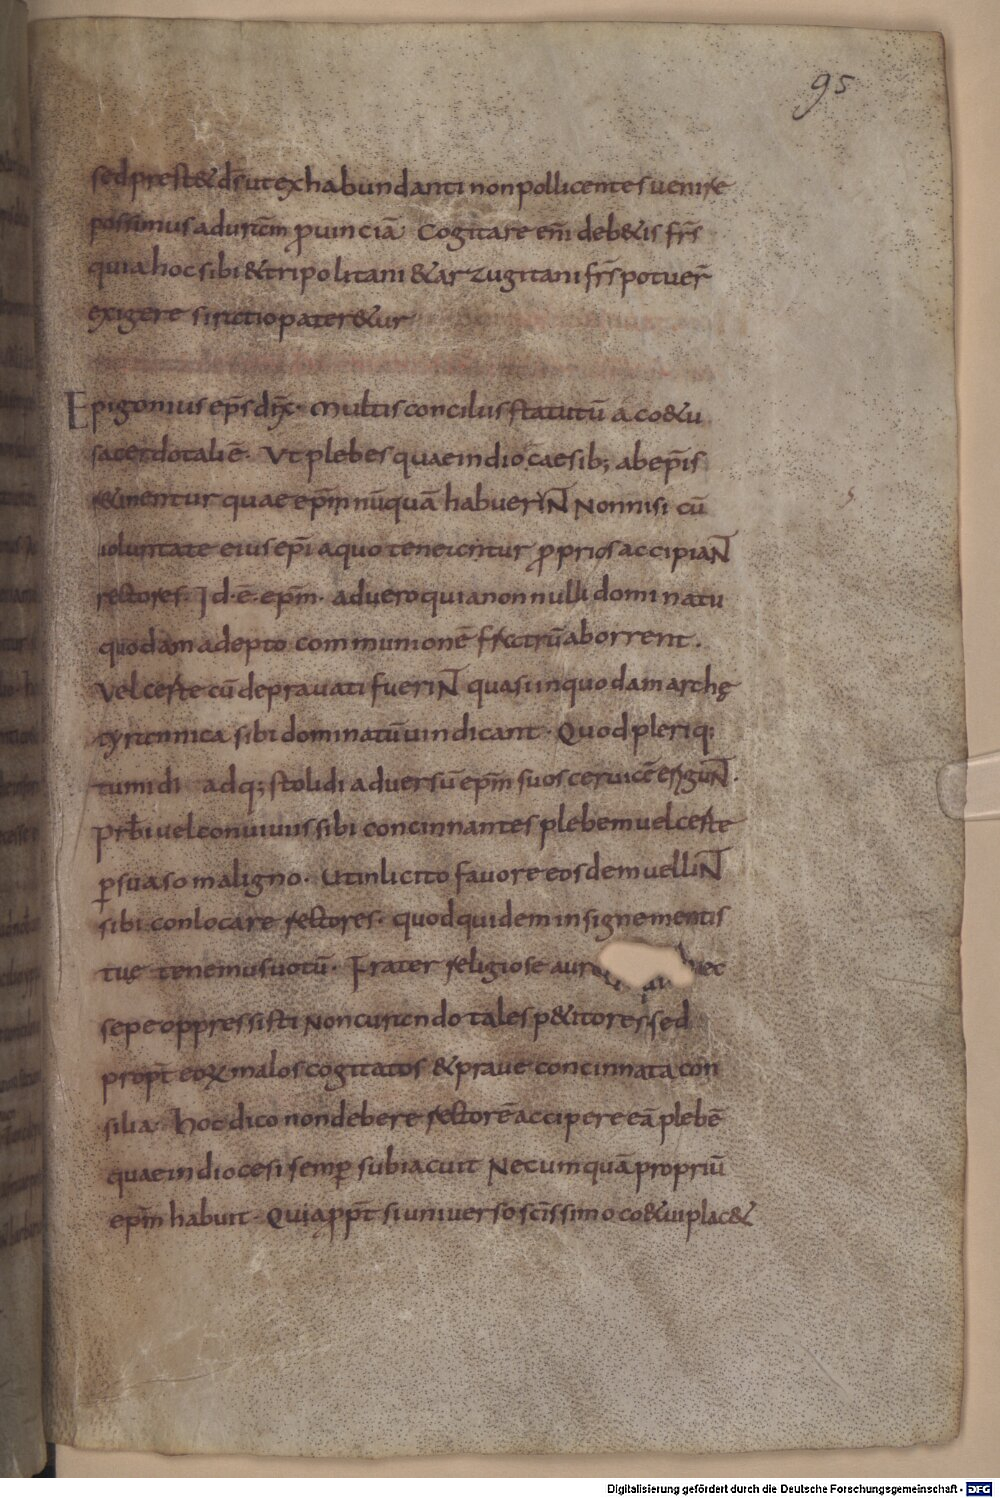 95
sed prest& ds ut ex habundanti non pollicentes venire
possimus ad uricm̄ ꝓuinciā Cogitare eni̅ deb&is fr̅s
quia hoc sibi & tripolitani & arzugitani fr̅s potuer̅
exigere si pater&ur
Epigonius ep̅s dix̅· Multis conciliis statutū a co&u
sacerdotali ē· Ut plebes quae in diocaesib; ab ep̅is
quae ep̅m nūquā habuerīNT Non nisi cū
voluntate eius ep̅i a quo tenentur ꝓprios accipiaNT
rectores· Id·ē· ep̅m· ad vero quia nonnulli dominatu
quodam adepto communionē fr̅m aborrent·
Vel certe cū depravati fueriNT quasi in quodam arche
tyrannica sibi dominatū uindicant· Quod pleriq;
tumidi adq; stolidi adversū ep̅m suos cervicē erigunt·
Pr̅bi vel conviviis sibi concinnantes plebem vel certe
ꝑsuaso maligno· Ut inlicito favore eosdem velliNT
sibi conlocare rectores· quod quidem insigne mentis
tuę tenemus uotū· Frater religiose aur ec
sepe oppressisti Non curando tales p&itores sed
propt̅ eorꝝ malos cogitatos & prave concinnata con
silia· Hoc dico non debere rectorē accipere eā plebē
quae in diocesi semꝑ subiacuit Nec umquā propriū
ep̅m habuit· Quiapp̅t si universo sc̅issimo co&ui plac&
Digitalisierung gefördert durch die Deutsche Forschungsgemeinschaft - DFG